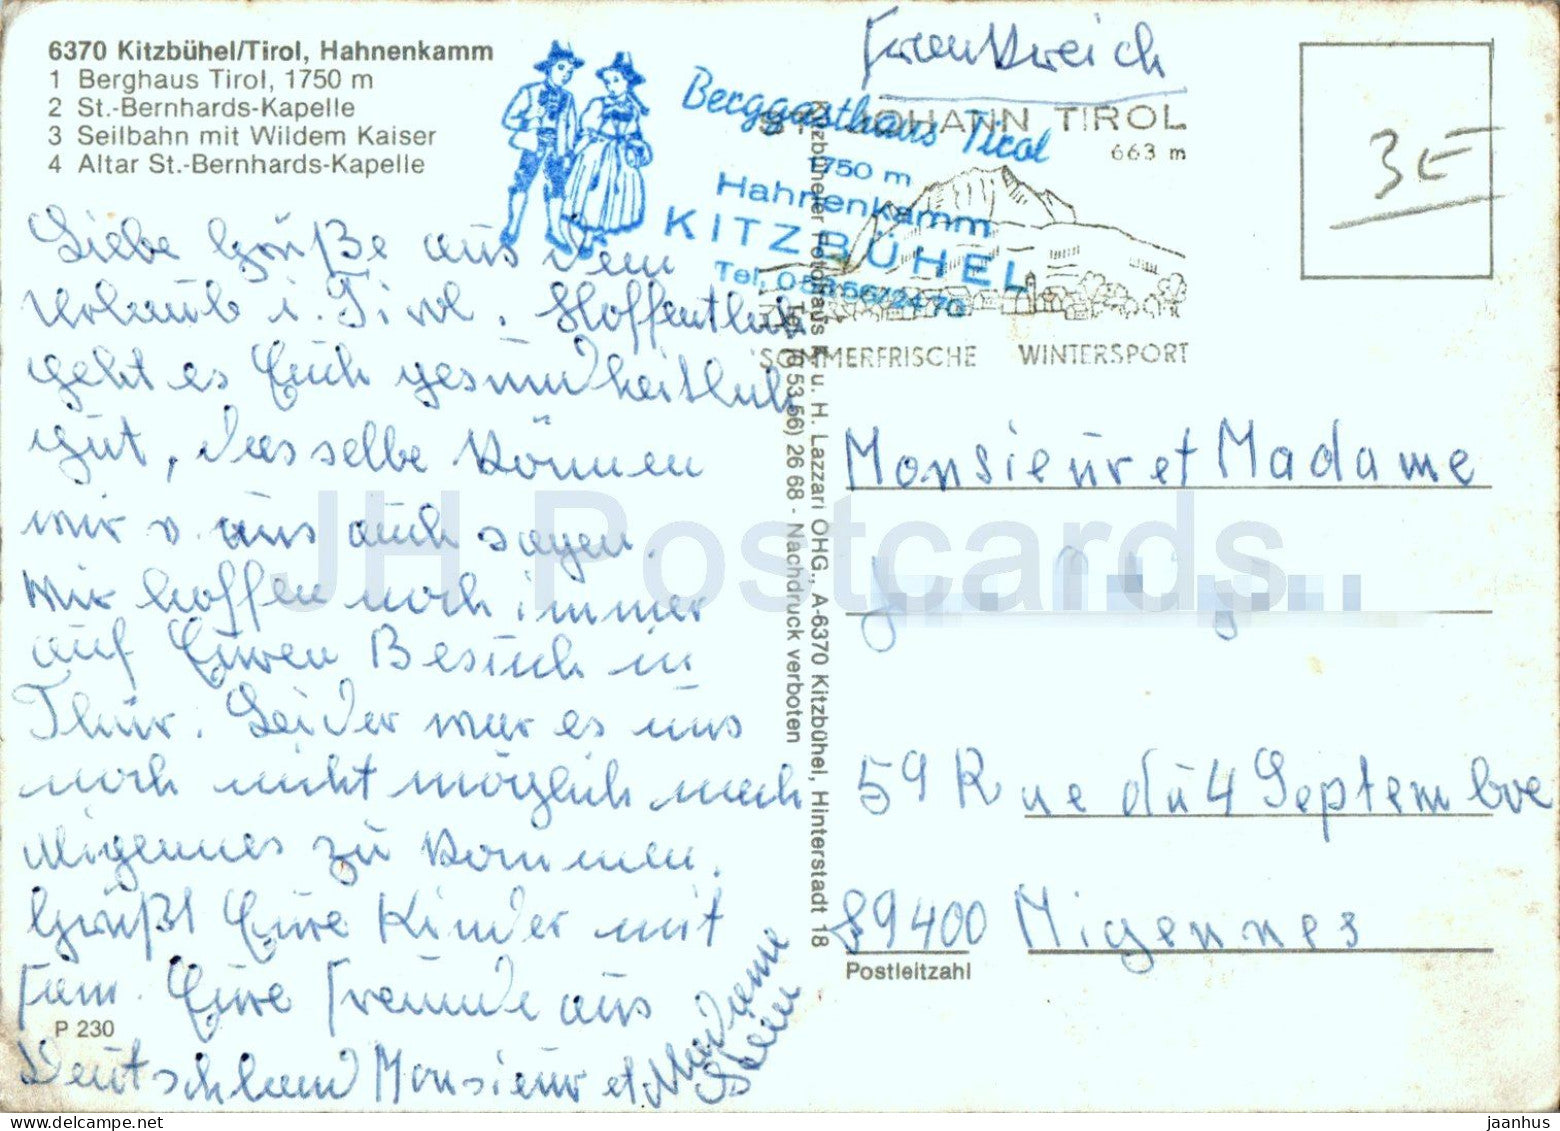 6370 Kitzbühel/Tirol, Hahnenkamm
1 Berghaus Tirol, 1750 m
2 St.-Bernhards-Kapelle
3 Seilbahn mit Wildem Kaiser
4 Altar St.-Bernhards-Kapelle
Berggasthaus Tirol
1750 m
Hahnenkamm
KITZBÜHEL
Tel. 05356/2470
Frankreich
JOHANN TIROL
663 m
SOMMERFRISCHE WINTERSPORT
3E
Liebe Grüße aus dem
Urlaub i. Tirol. Hoffentlich
geht es Euch gesundheitlich
gut, dasselbe können
wir v. uns auch sagen.
Wir hoffen noch immer
auf Euren Besuch in
Thür. Leider war es uns
noch nicht möglich nach
Migennes zu kommen.
Grüßt Eure Kinder mit
Fam. Eure Freunde aus
Deutschland Monsieur et Madame
P 230
Kitzbüheler Fotohaus K. u. H. Lazzari OHG., A-6370 Kitzbühel, Hinterstadt 18
Tel. (0 53 56) 26 68 - Nachdruck verboten
Monsieur et Madame
59 Rue du 4 Septembre
89400 Migennes
Postleitzahl
JH Postcards
www.delcampe.net
jaanhus